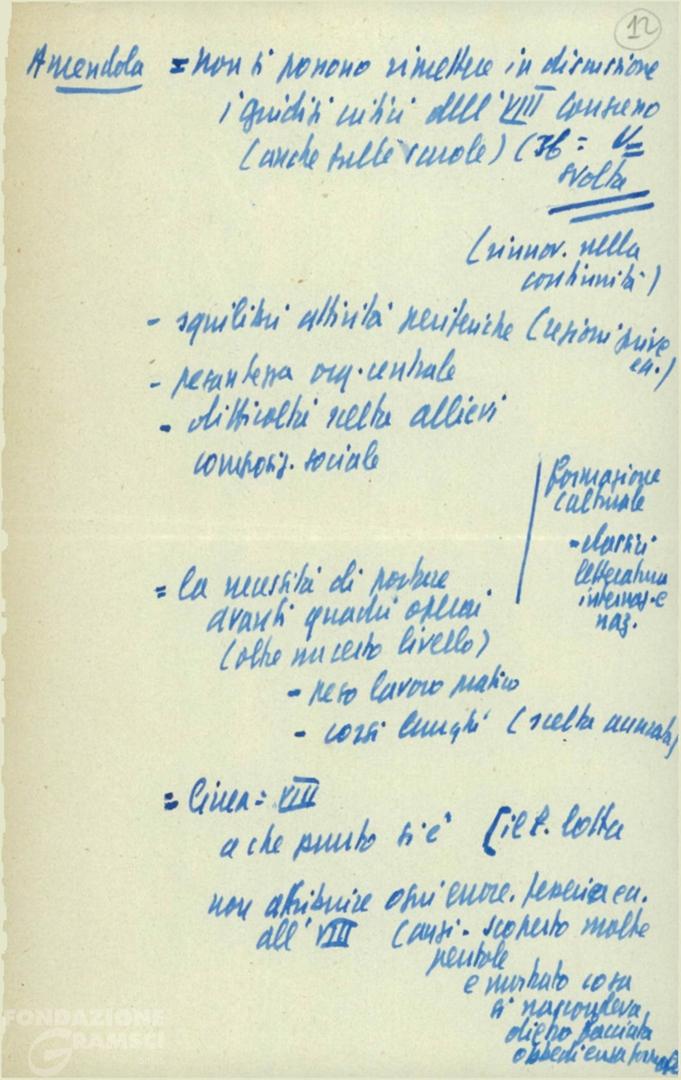 12
Amendola = non si possono rimettere in discussione
i giudizi critici dell'VIII Congresso
(anche sulle scuole) (
svolta
(rinnov. nella
continuità)
- squilibri attività periferiche (sezioni prive
ecc.)
- pesantezza org. centrale
- difficoltà scelta allievi
composiz. sociale
formazione
culturale
- classici
letteratura
internaz. e
naz.
= la necessità di portare
avanti quadri operai
(oltre un certo livello)
- peso lavoro pratico
- corsi lunghi (scelta accurata)
= Linea = VIII
a che punto si è (il P. lotta
non attribuire ogni errore
all'VIII (anzi - scoperto molte
pentole
e mostrato cosa
si nascondeva
dietro facciata
obbedienza formale
FONDAZIONE
GRAMSCI